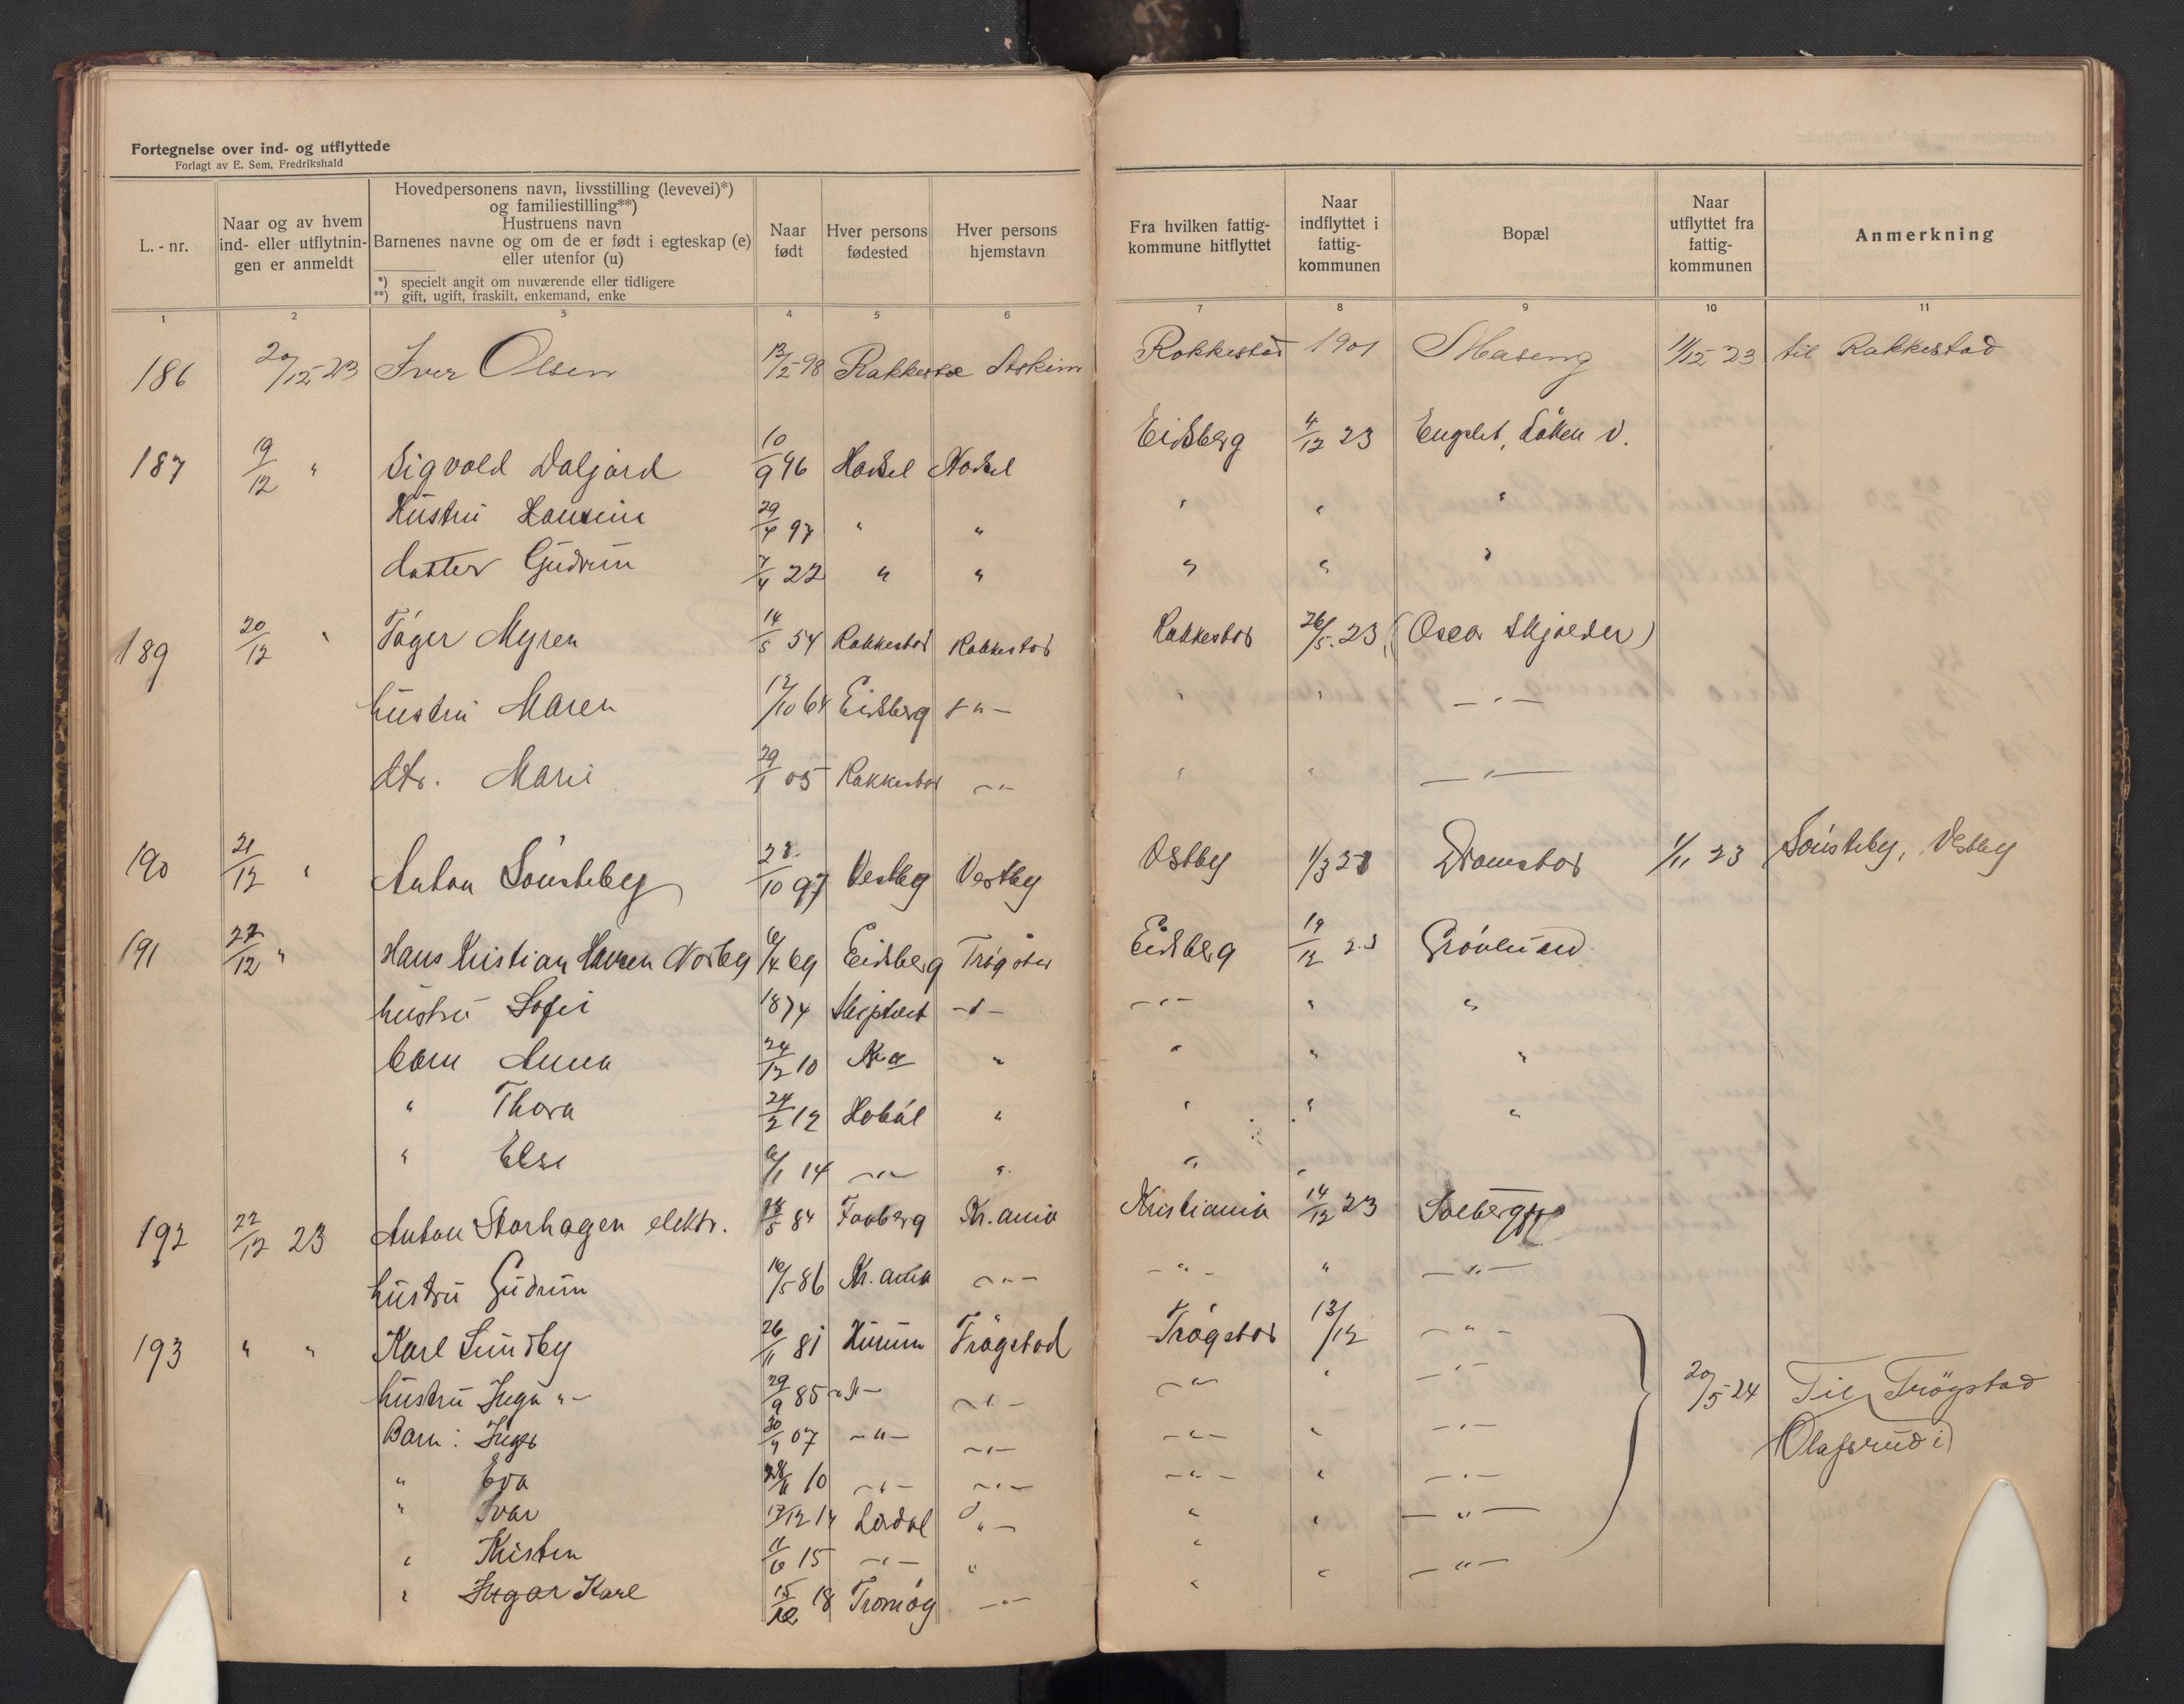 Fortegnelse over ind- og utflyttede
Forlagt av E. Sem, Fredrikshald
L.-nr.
Naar og av hvem ind- eller utflytnin- gen er anmeldt
Hovedpersonens navn, livsstilling (levevei)*)
og familiestilling**)
Hustruens navn
Barnenes navne og om de er født i egteskap (e)
eller utenfor (u)
*) specielt angit om nuværende eller tidligere
**) gift, ugift, fraskilt, enkemand, enke
Naar født
Hver persons fødested
Hver persons hjemstavn
Fra hvilken fattig- kommune hitflyttet
Naar indflyttet i fattig- kommunen
Bopæl
Naar utflyttet fra fattig- kommunen
Anmerkning
1 2 3 4 5 6 7 8 9 10 11
186 20/12 23 Iver Olsen 13/2 98 Rakkestad Askim Rakkestad 1901 11/12 23 til Rakkestad
187 19/12 " Sigvold Daljord 10/9 96 Hadsel Hadsel Eidsberg 4/12 23
Hustru 29/4 97 " " " " "
datter Gudrun 7/4 22 " " " " "
189 20/12 " Myren 14/5 54 Rakkestad Rakkestad Rakkestad 26/5 23 (Oscar Skjolder)
hustru Maren 12/10 64 Eidsberg -"- " " -"-
dtr. Marie 29/1 05 Rakkestad -"- " " -"-
190 21/12 " Anton Sønsteby 10 97 Vestby Vestby Vestby 1/3 23 1/11 23 Sønsteby, Vestby
191 22/12 " Hans Kristian Hansen Norby 6/4 69 Eidsberg Trøgstad Eidsberg 19/12 23 Grønlund
hustru Sofie 1874 Skiptvet -"- -"- " "
barn Anna 24/12 10 Kra " " " "
" Thora 24/2 12 Hobøl " " " "
" Else 6/11 14 -"- " " "
192 22/12 23 Anton Storhagen elektr. 18/5 84 Faaberg Kr.ania Kristiania 14/12 23
hustru Gudrun 16/5 86 Kr.ania -"- -"- " -"-
193 " " Karl Lundby 26/11 81 Hurum Trøgstad Trøgstad 13/12 -"-
hustru Inga "- 29/9 85 -"- -"- -"- " -"- 20/5 24 Til Trøgstad
Barn: Inger 30/4 07 -"- -"- -"- " -"- Olafsrud i
" Eva 10 -"- -"- -"- " -"-
" Ivar 17/12 14 " - " " -"-
" Kristen 11/6 15 -"- " " " -"-
" Ingar Karl 15/12 18 Tromøy -"- "